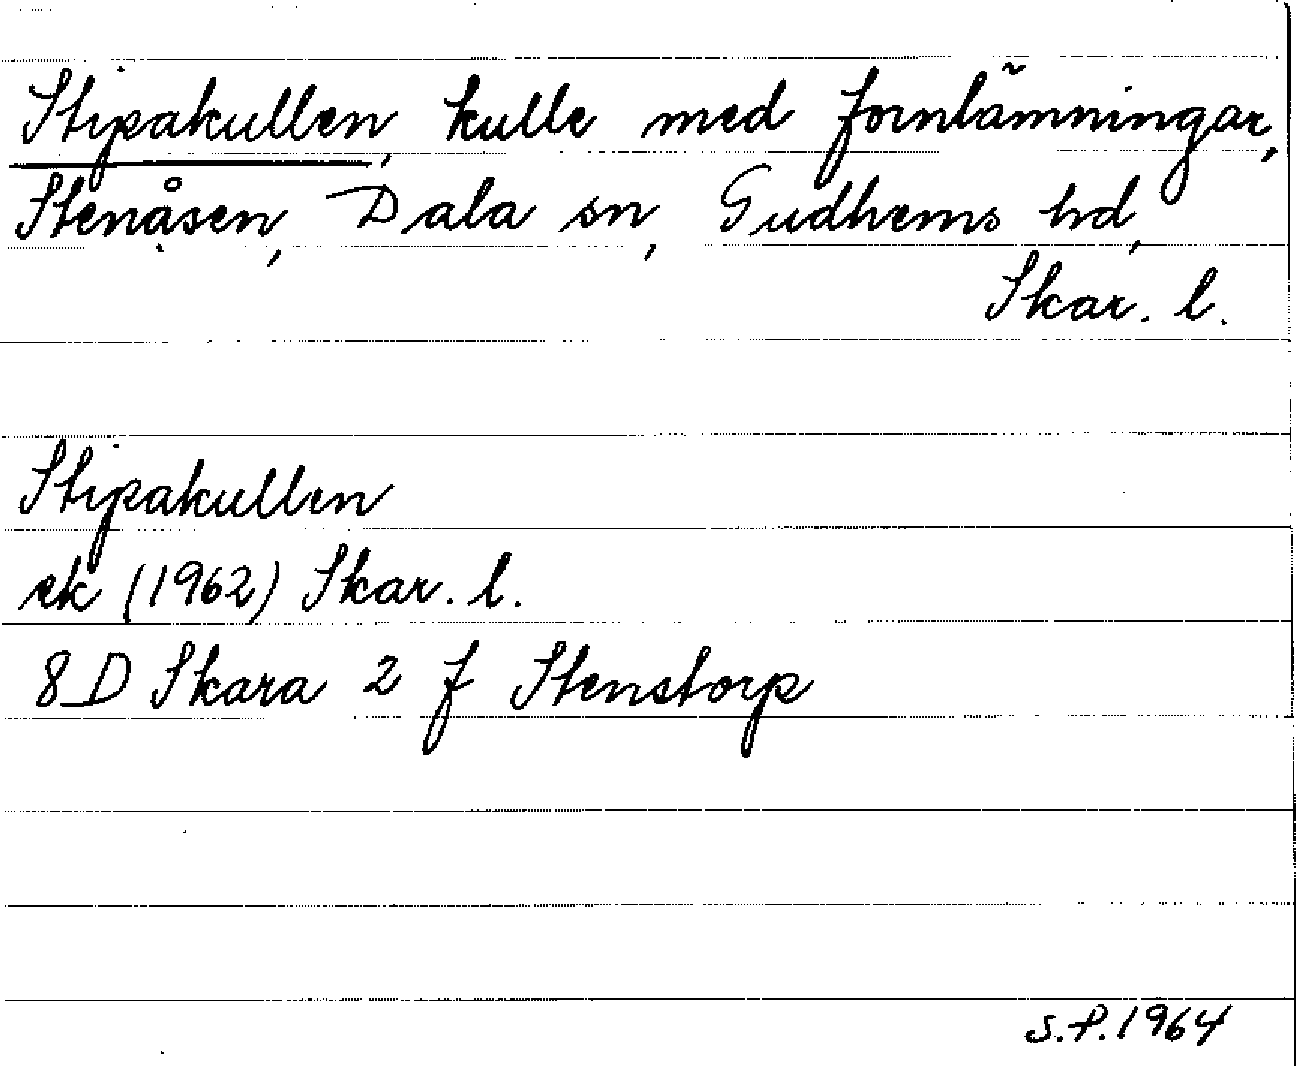 Stipakullen, kulle med fornlämningar,
Stenåsen, Dala sn, Gudhems hd,
Skar. l.
Stipakullen
ek (1962) Skar. l.
8 D Skara 2 f Stenstorp
S.P. 1964